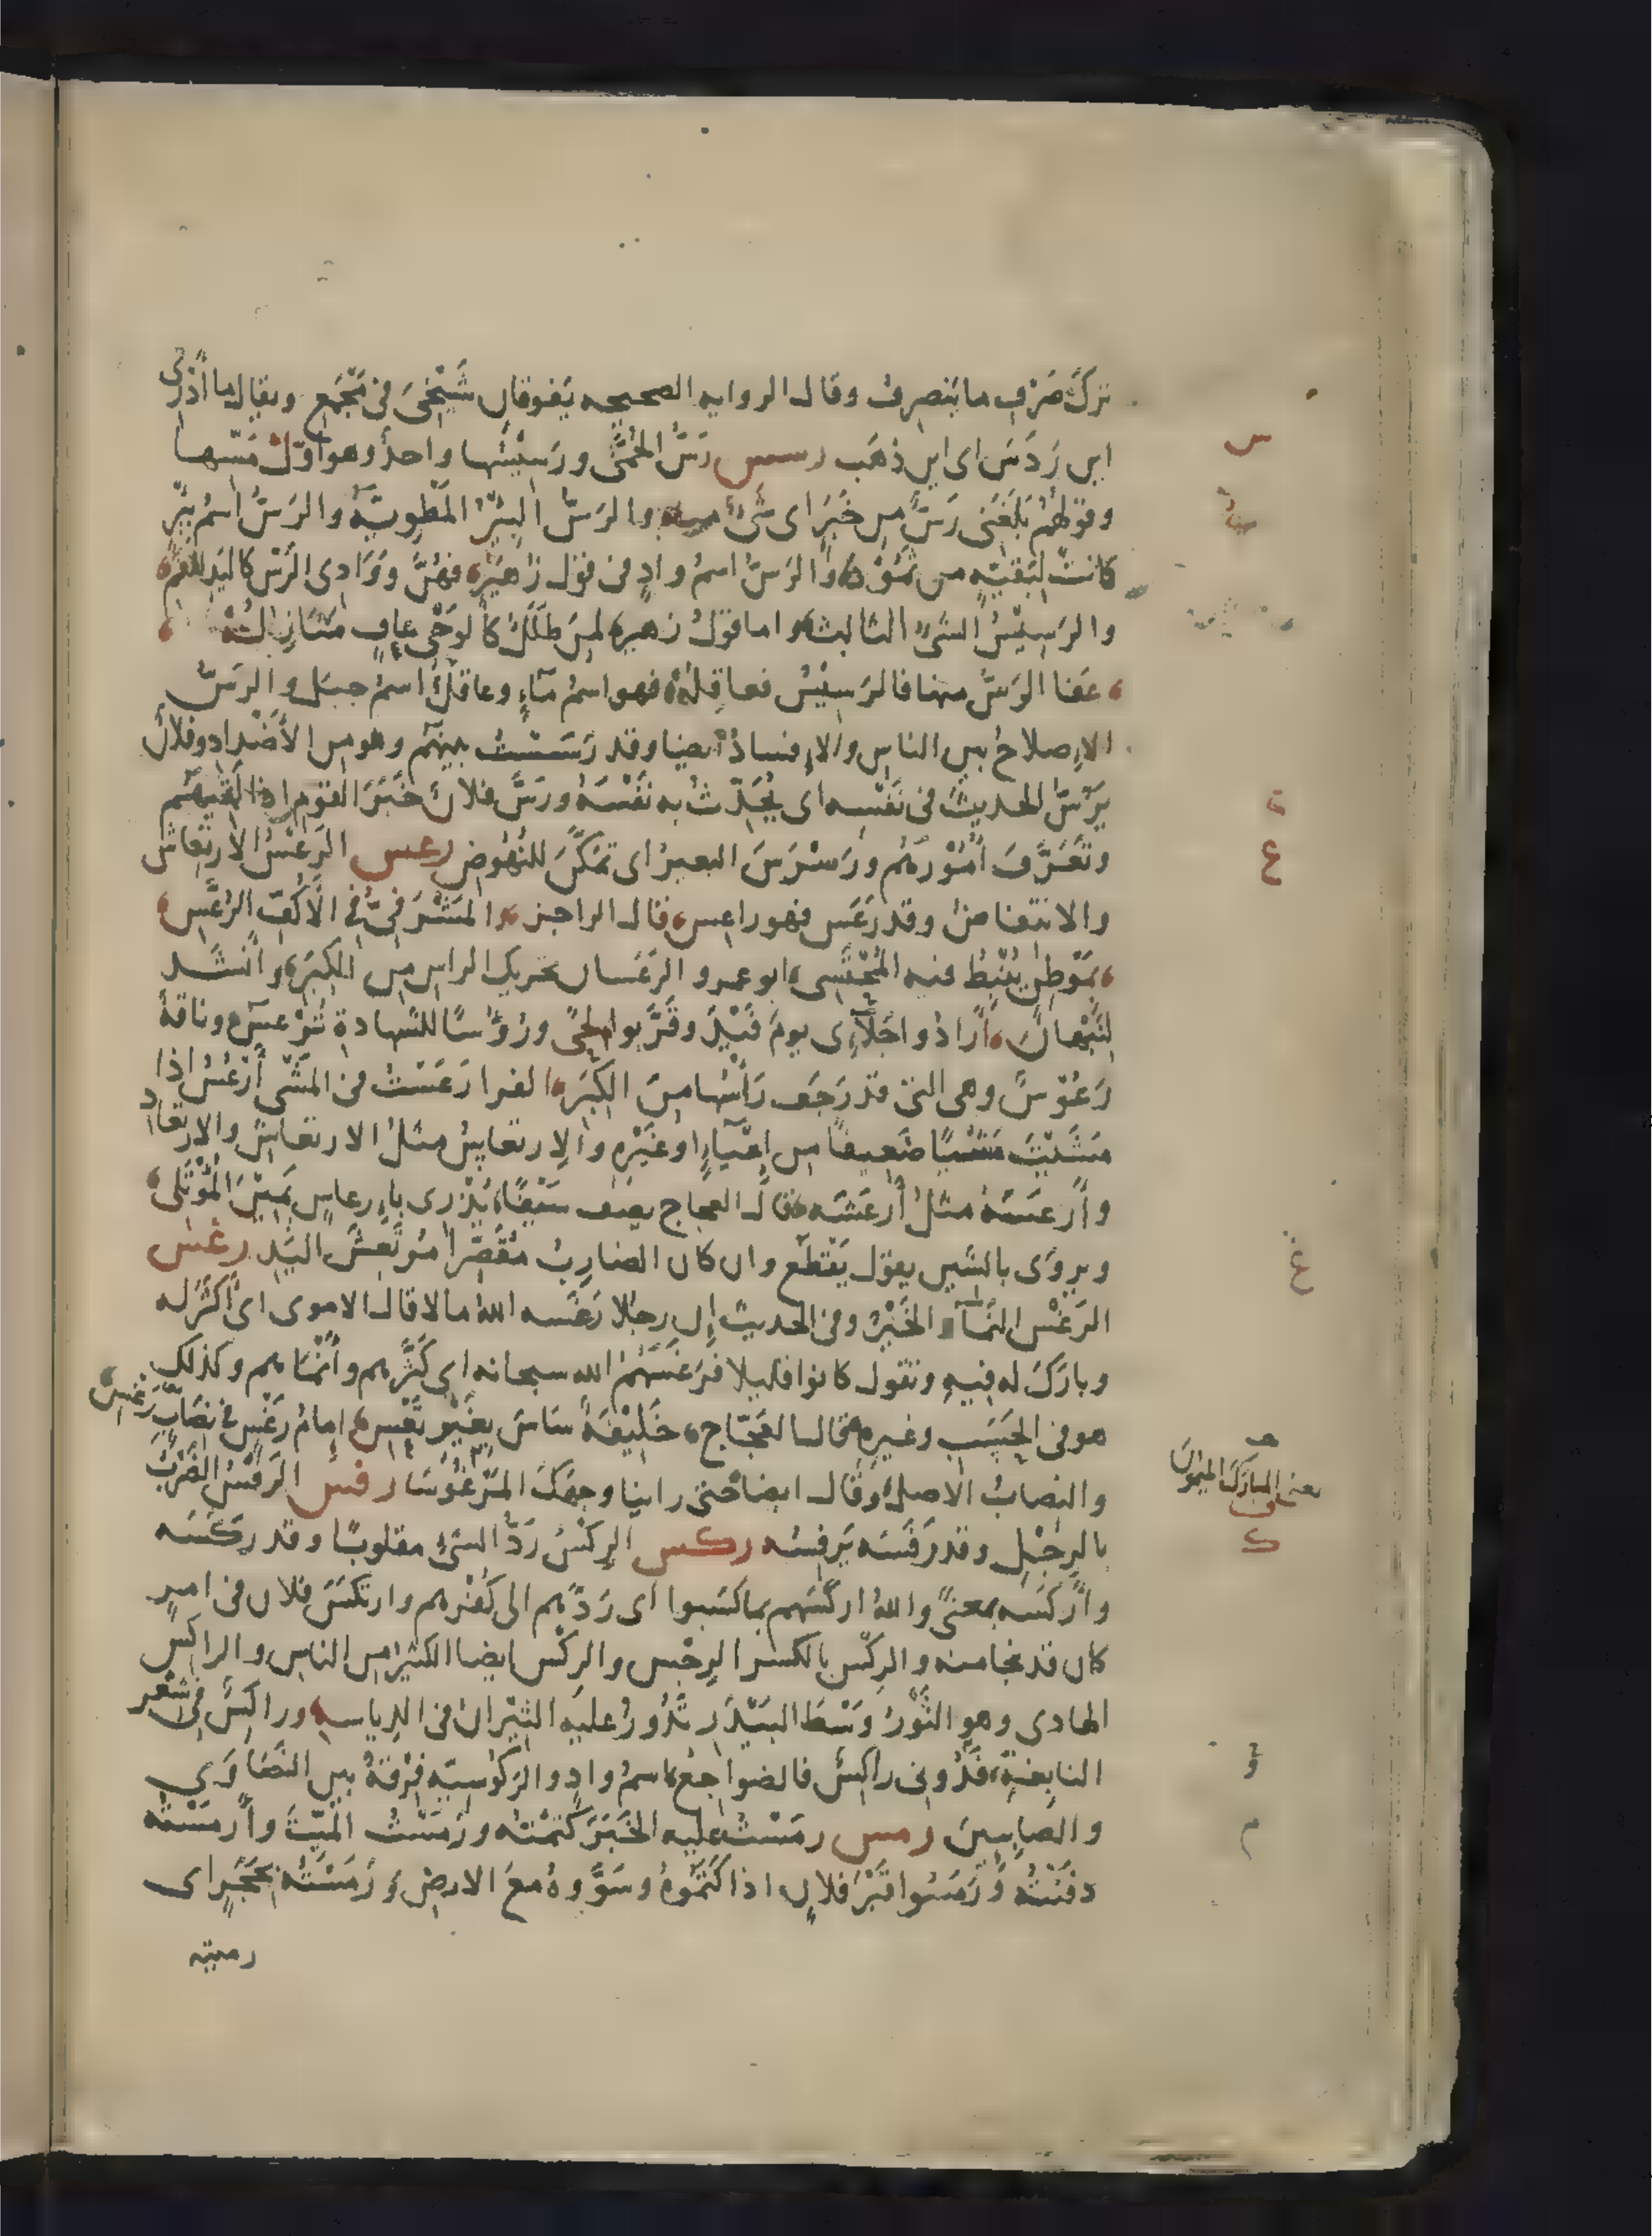 ترك صَرْفِ ما ينصرف وقال الرواية الصحيحة يَفوقان شَيْخِيَ في مَجْمَع ويقال ما أَدْرِى
اين رَدَسَ اى اين ذهَب رسس رَسُّ الحُمَّى ورَسِيْسُها واحدٌ وهو اوّلُ مَسّها
وقولهُمْ بَلَغَنى رَسٌّ من خَبَرٍ اى شَىْءٌ منه والرَسُّ البِئْرُ المَطْوِيَّة والرَسُّ اسْمُ بِئْرٍ
كانتْ لبَقيّةٍ من ثَمُوْدَ والرَسُّ اسمُ وادٍ فى قول زُهَيْرٍ فهُنَّ ووَادِى الرَسّ كاليَدِ للفَمِ
والرَسِيْسُ الشىْءُ الثابت واما قولُ زهيرٍ لمَن طَلَلٌ كالوَحْىِ عافٍ مَنَازِلُهْ
عَفَا الرَسُّ منها فالرَسِيْسُ فعاقِلُهْ فهو اسمُ مآءٍ وعاقلٌ اسمُ جبَل والرَسُّ
الإصلاحُ بين الناس والإفسادُ أيضا وقد رَسَسْتُ بينهُم وهو من الأَضْداد وفلانٌ
يَرُسُّ الحديثَ فى نَفْسِه اى يُحَدِّثُ به نَفْسَهُ ورَسَّ فلانٌ خَبَرَ القوْمِ اذا لَقِيَهُم
وتَعَرَّفَ اُمُوْرَهُم ورَسْرَسَ البعيرُ اى تمَكَّنَ للنُّهُوضِ رعس الرَعْسُ الارتِعَاشُ
والانتفاضُ وقد رَعَس فهو راعِس قال الراجز والمَشْرَفِىّ فى الاَكُفِّ الرُعَّسِ
بمَوْطِنٍ يُنْبِطُ فيه المُحْتَسِى ابو عمرو الرَعَسان تحريك الراس من الكِبَر وأنشَد
لنَبْهان أرادُوا جَلآءِى يومَ فَيْدَ وقَرَّبوا لِحًى ورُؤُسًا للشهادةِ تَرْعَس وناقةٌ
رَعُوْسٌ وهى التى قد رَجَف رَأْسُها منَ الكِبَر الفرا رَعَسْتُ فى المَشْى أَرْعَسُ اذا
مَشَيْتَ مَشْيًا ضَعِيفًا من اِعْيَآءٍ اوغَيْرِه والارتعاسُ مثلُ الارتعاش والارتعاد
وأرعَسَهُ مثلُ أَرْعَشَه قال العجاج يصف سَيْفًا يُذْرِى بإرعاسِ يَمِيْنِ المُؤْتَلِى
ويروَى بالشين يقول يَقْطَع وان كان الضارِبُ مُقَصِّرا مُرْتعِشَ اليَدِ رغس
الرَغْس النَمَآء والخَيْرُ وفى الحديث إن رجلا رَغَسه الله مالا قال الاموى اى أكثَرَ له
وبارَكَ له فيه وتقول كانوا قليلا فرَغَسَهُمُ الله سبحانه اى كَثَّرهم وأَنْمَاهم وكذلك
هو فى الحَسَب وغيره قال العَجّاج خَلِيْفَةً سَاسَ بغَيْرِ تَعْسِ اِمامُ رَغْسٍ فى نِصَابِ رَغْسِ
والنِصابُ الاصلُ وقال ايضا حتى راينا وجهَكَ المَرْغُوْسَا رفس الرَفْسُ الضَرْبُ
بالرِجْل وقد رَفَسَه يَرفِسُه ركس الرِكْسُ رَدُّ الشىْءِ مقلوبًا وقد رَكَسَه
وأَرْكَسَه بمعنىً والله اركَسَهم بماكسَبوا اى رَدَّهم الى كُفْرهم وارتكَسَ فلان فى امرٍ
كان قد نجا منه والرِكْس بالكسر الرِجْس والرِكْس ايضا الكثير من الناس والراكِسُ
الهادى وهو الثَّوْرُ وَسْطَ البَيْدَر تَدُورُ عليه الثِيْرانُ فى الدِياسه وراكِسٌ فى شعر
النابغةِ فدُونى راكِسٌ فالضواجعُ اسمُ وادٍ والرَكُوْسِيّه فِرْقةٌ بين النَصَارَى
والصابِيِنَ رمس رمَسْتُ عليه الخَبَر كَتَمْتُه ورَمَسْتُ المَيِّتَ وأَرمَسْتُه
دفَنْتُه ورَمَسُوا قَبْرَ فلان اذا كَتَمُوهُ وسَوَّوهُ معَ الارضِ ورَمَسْتُه بحَجَرٍ اى
رميته
س
ع
غ
يعنى المبارَك الميمون
ف
ك
م